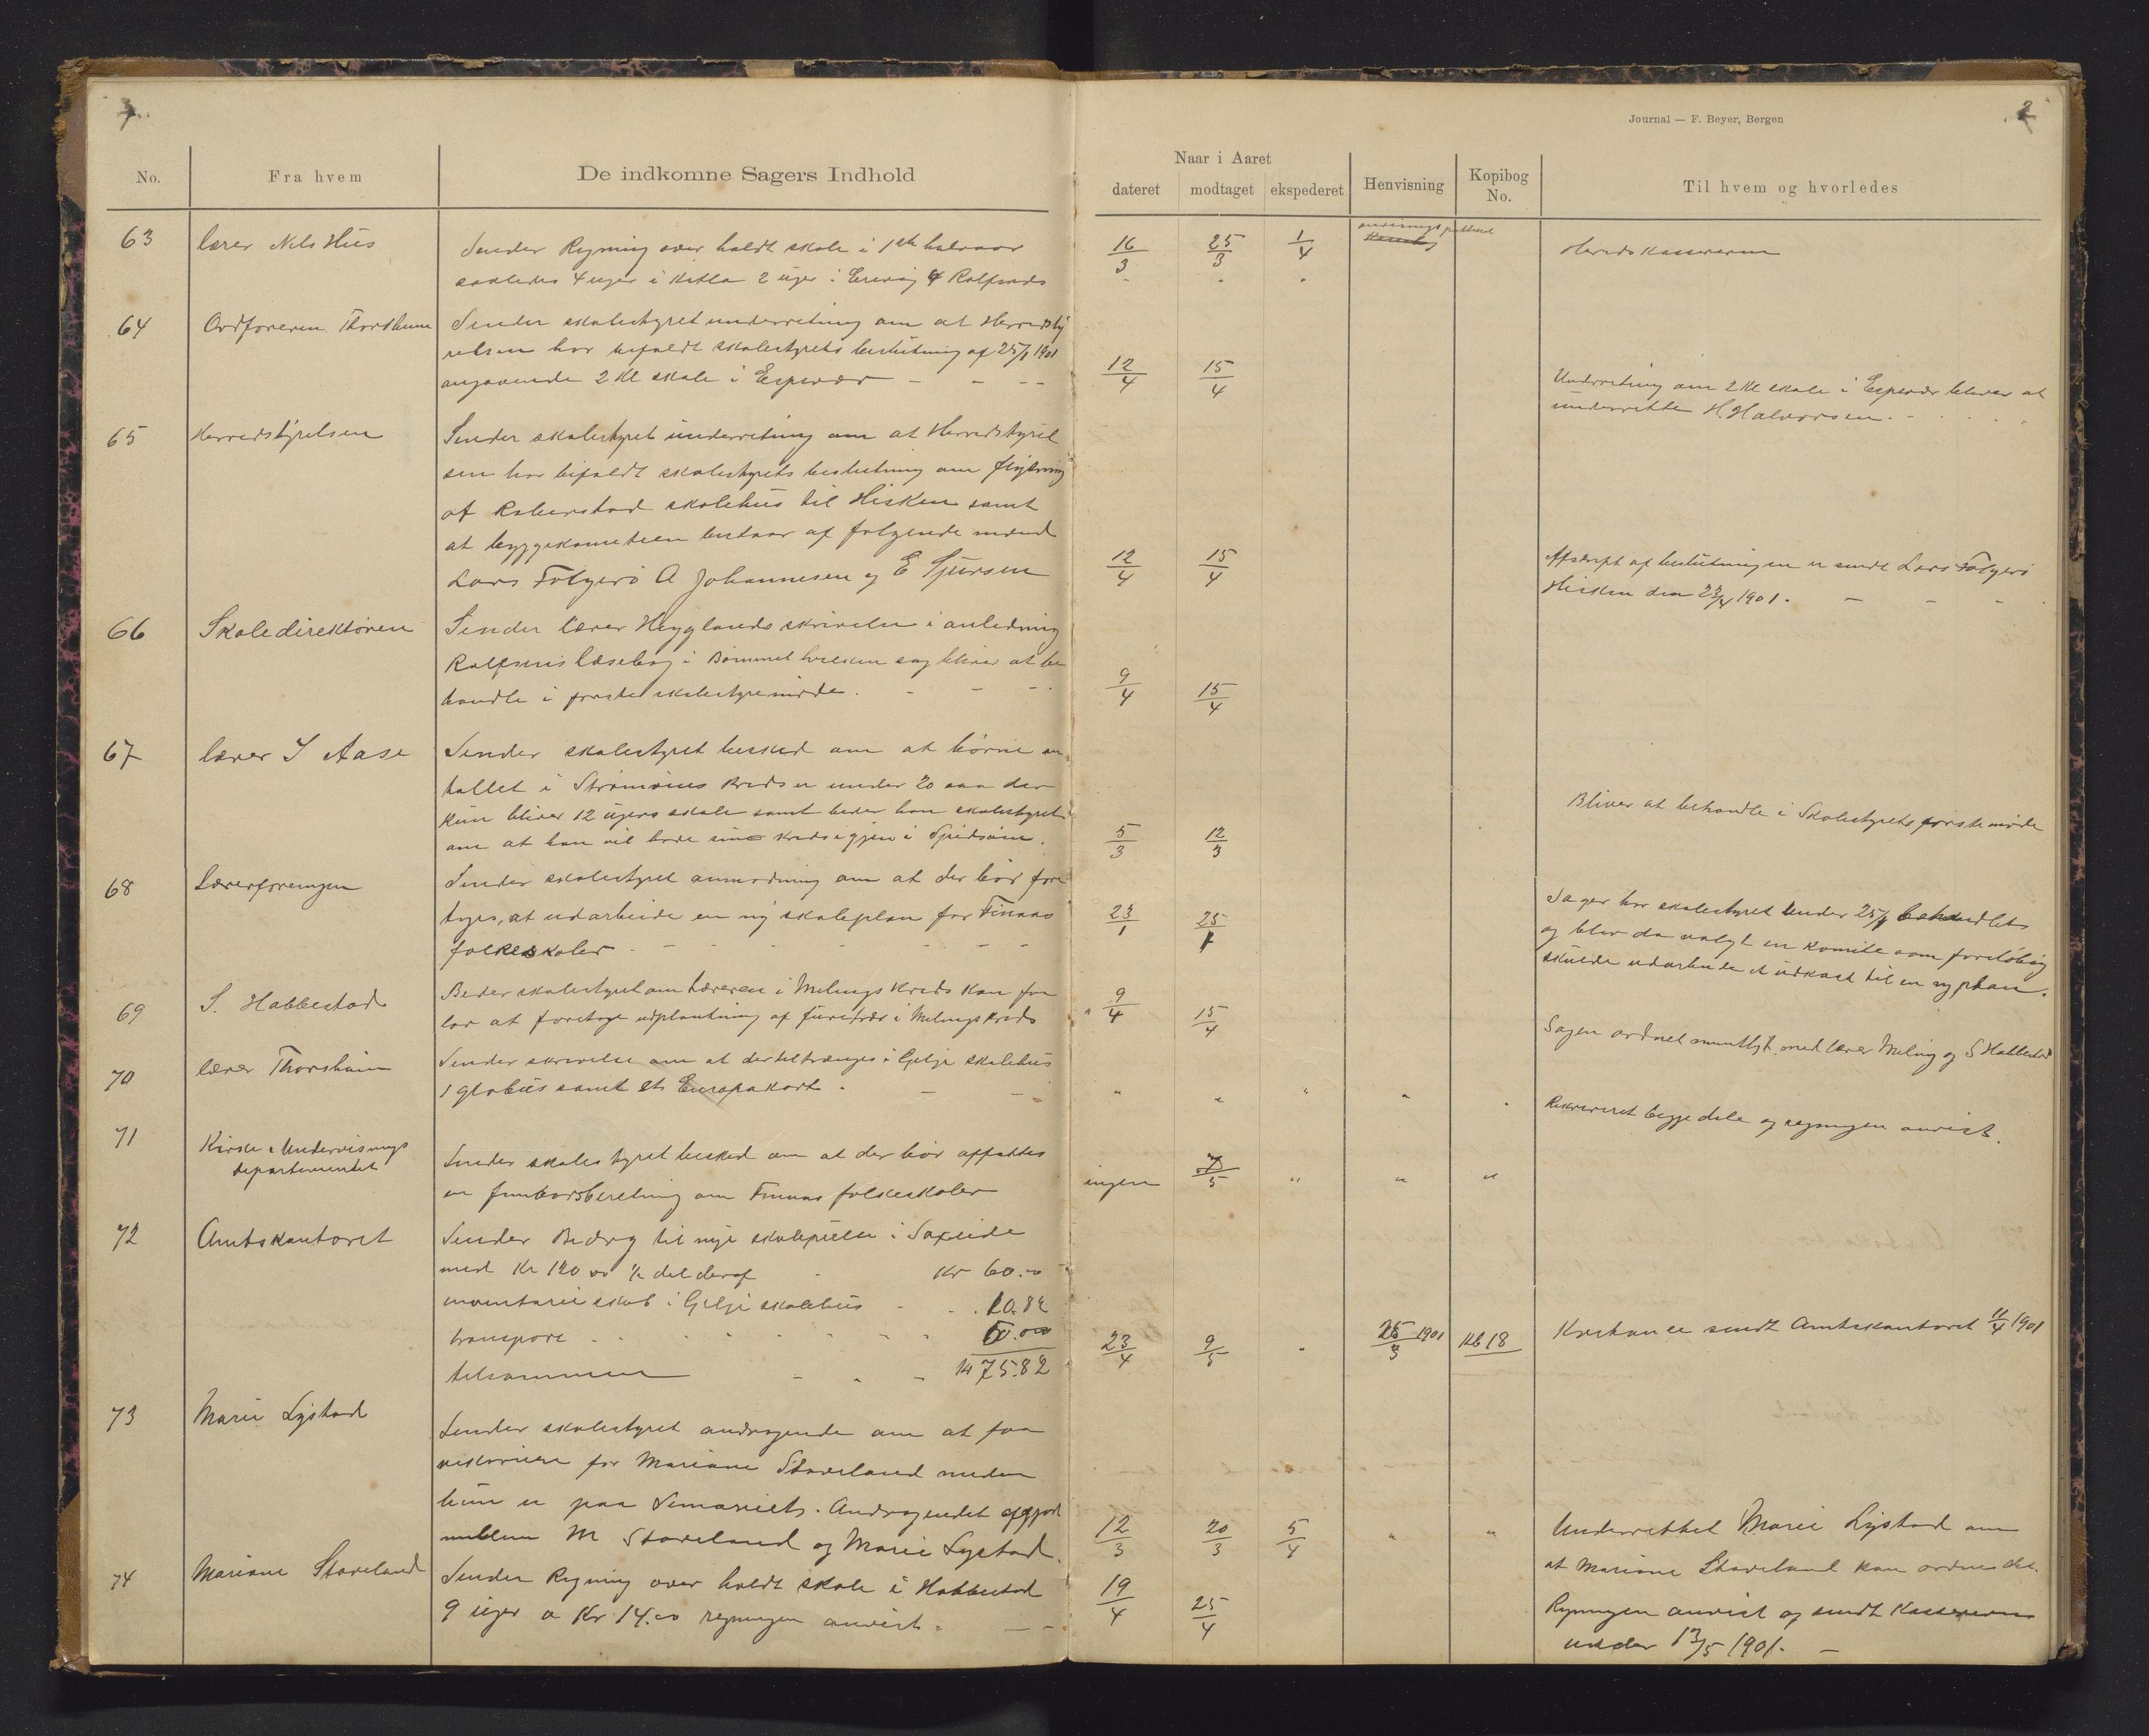 Journal — F. Beyer, Bergen
2
No.
Fra hvem
De indkomne Sagers Indhold
Naar i Aaret
dateret
modtaget
ekspederet
Henvisning
Kopibog No.
Til hvem og hvorledes
63
lærer Nils Hus
Sender Regning over holdt skole i 1ste halvaar
saaledes 4 uger i 2 uger i
16/3
25/3
1/4
Herredskassereren
64
Ordføreren Thorsheim
Sender skolestyret underretning om at Herredsty
relsen har bifaldt skolestyrets beslutning af 25/1 1901
angaaende 2 Kl skole i Espevær
12/4
15/4
Underretning om 2 Kl skole i Espevær bliver at
underrette H. Halvorsen.
65
Herredstyrelsen
Sender skolestyret underretning om at Herredstyrel
sen har bifaldt skolestyrets beslutning om flytning
af skolehus til Hisken samt
at byggekomiteen bestaar af følgende mænd
Lars Folgerø A Johannesen og E Sjursen
12/4
15/4
Afskrift af beslutningen er sendt Lars Folgerø
Hisken den 23/4 1901.
66
Skoledirektøren
Sender lærer Hegglands skrivelse i anledning
Rolfsens læsebog i Bømmel hvilken sag bliver at be
handle i første skolestyremøde.
9/4
15/4
67
lærer I Aase
Sender skolestyret besked om at børne an
tallet i Strømøens Kreds er under 20 saa der
kun bliver 12 ugers skole samt beder han skolestyret
om at han vil have sin kreds igjen i
5/3
12/3
Bliver at behandle i Skolestyrets første møde
68
Lærerforeningen
Sender skolestyret anmodning om at der bør fore
tages, at udarbeide en ny skoleplan for Finnaas
folkeskoler
23/1
25/1
Sagen har skolestyret under 25/1 behandlet
og blev da valgt en komite som foreløbig
skulde udarbeide et udkast til en ny plan.
69
S. Habbestad
Beder skolestyret om Læreren i Melings Kreds kan faa
lov at foretage udplantning af furutrær i Melings Kreds
9/4
15/4
Sagen ordnet mundtligt med lærer Meling og S Habbestad
70
lærer Thorsheim
Sender skrivelse om at der tiltrænges i Gilje skolehus
1 globus samt et Europakart.
Rekvireret begge dele og regningen anvist.
71
Kirke & Undervisnings
departementet
Sender skolestyret besked om at der bør affattes
en femaarsberetning om Finnaas folkeskoler
ingen
7/5
72
Amtskontoret
Sender Bidrag til nye skolepulte i
med Kr 120 00 ½ del deraf Kr 60.00
inventarieskab i Gilje skolehus 10.82
transport 5.00
tilsammen Kr 75.82
23/4
9/5
25/3 1901
Kb 18
Kvitance sendt Amtskontoret 11/4 1901
73
Marie Lystad
Sender skolestyret andragende om at faa
vikariere for Mariane Staveland medens
hun er paa Semariets. Andragendet afgjort
mellem M Staveland og Marie Lystad.
12/3
20/3
5/4
Underrettet Marie Lystad om
at Mariane Staveland kan ordne det.
74
Mariane Staveland
Sender Regning over holdt skole i Habbestad
9 uger a Kr 14.00 regningen anvist.
19/4
25/4
Regningen anvist og sendt Kassereren
under 13/5 1901.